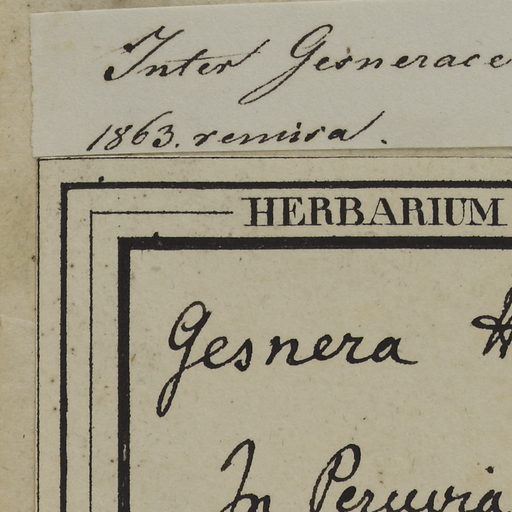 Inter Gesnerace
1863. remisa.
HERBARIUM
Gesnera H
In Peruvia